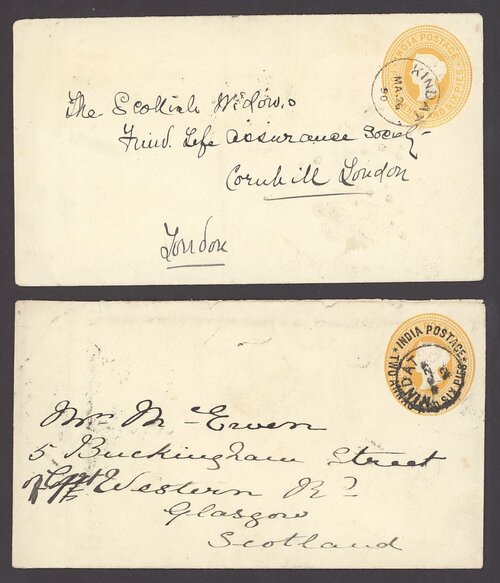 INDIA POSTAGE
KINDAT
MA.26
90
The Scottish Widows
Fund Life Assurance Society
Cornhill London
London
INDIA POSTAGE
TWO ANNAS SIX PIES
KINDAT
Mrs McEwen
5 Buckingham Street
Western Rd
Glasgow
Scotland